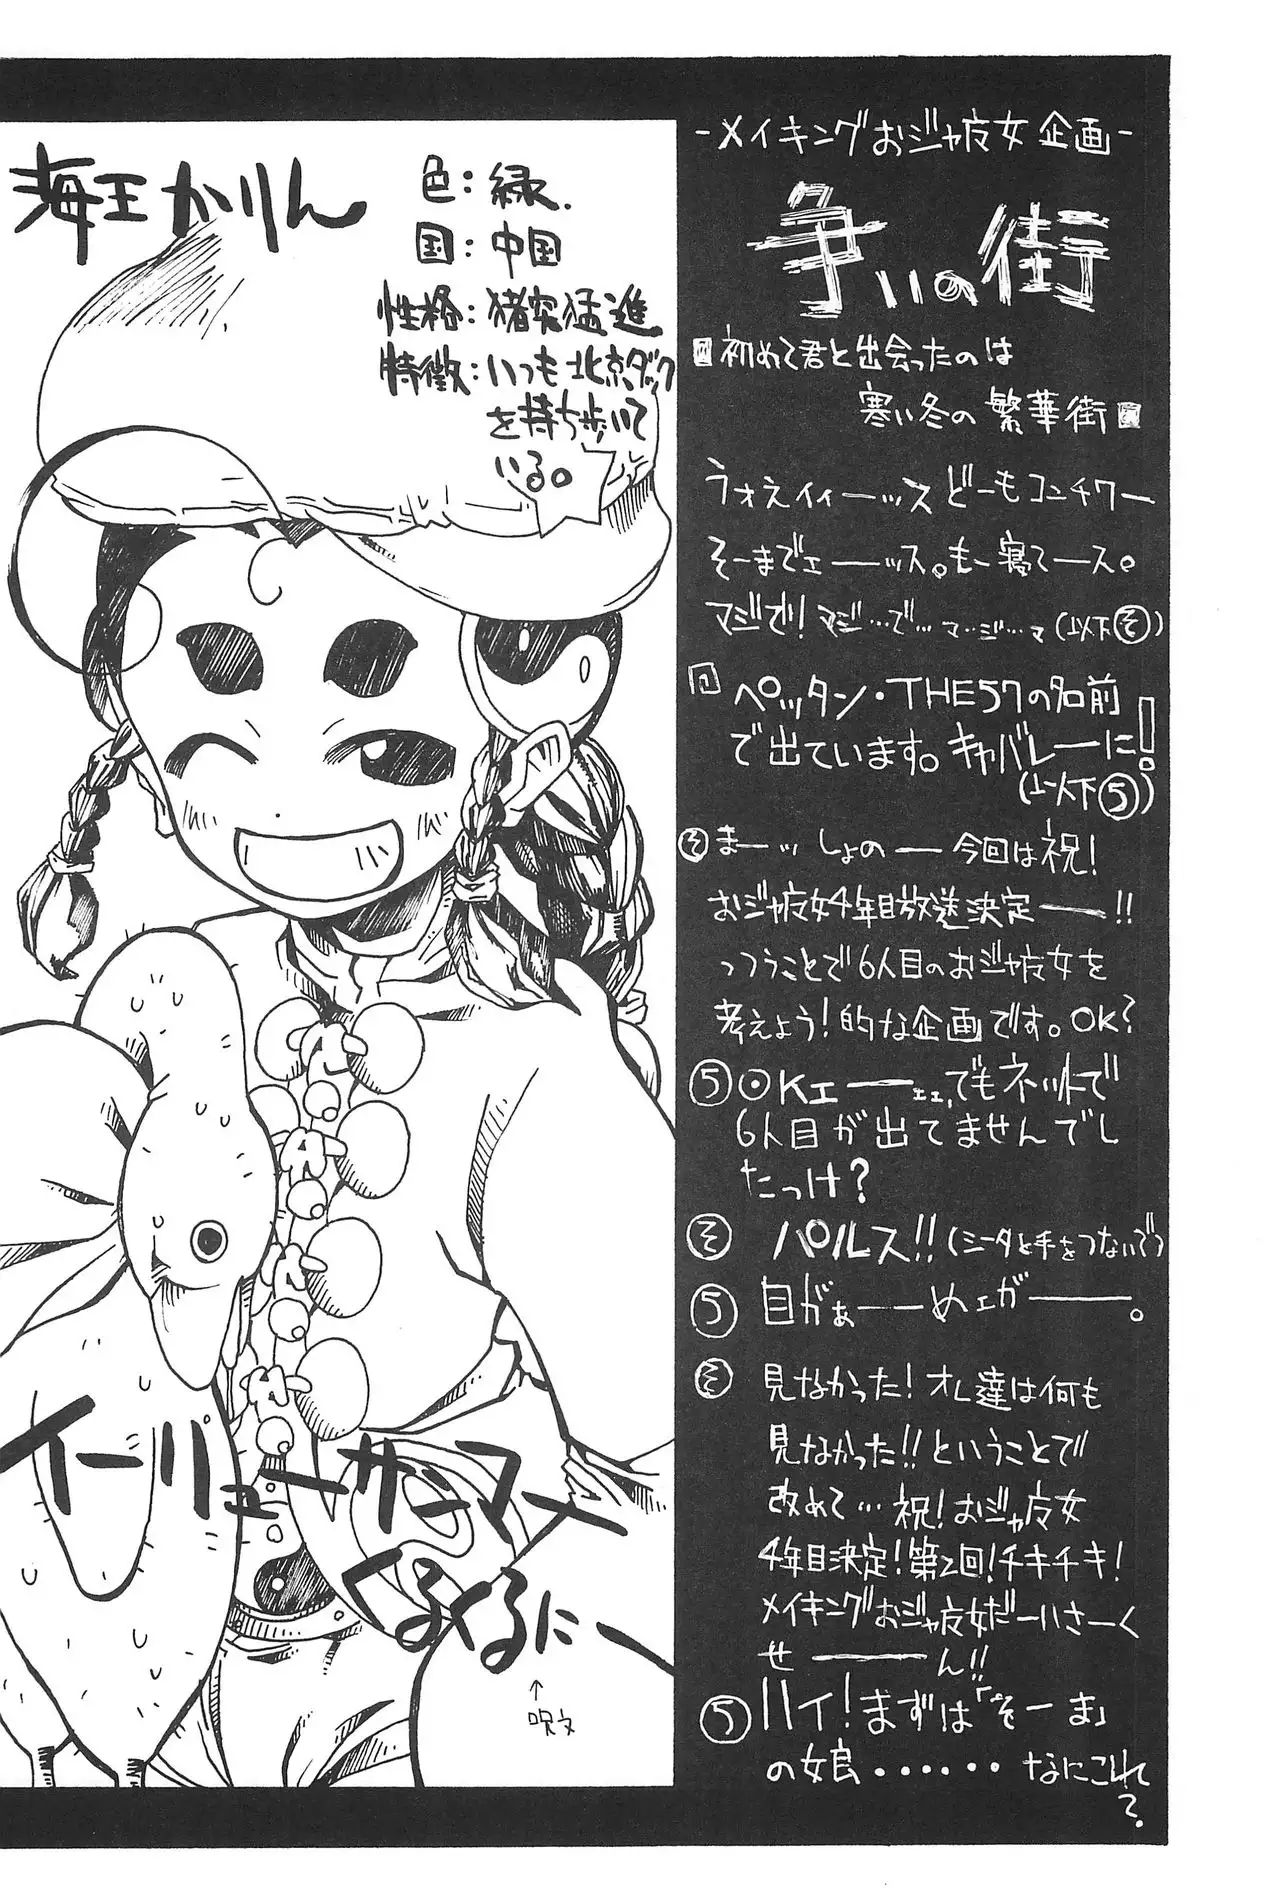 -メイキングおジャ魔女企画-
争いの街
初めて君と出会ったのは
寒い冬の繁華街
ウォえイィーッス どーもコンチワー
そーまでェーーッス。もー寝てース。
マジで! マジ…で…マ…ジ…マ(以下そ)
ペッタン・THE57の名前
で出ています。キャバレーに!
(以下5)
そ まーッ しょのー 今回は祝!
おジャ魔女4年目放送決定ー!!
っつうことで6人目のおジャ魔女を
考えよう!的な企画です。OK?
5 OKェーーェェ、でもネットで
6人目が出てませんでし
たっけ?
そ バルス!!(シータと手をつないで)
5 目がぁーーめェガーー。
そ 見なかった!オレ達は何も
見なかった!!ということで
改めて…祝!おジャ魔女
4年目決定!第2回!チキチキ!
メイキングおジャ魔女だーいさーく
せーーん!!
5 ハイ!まずは「そーま」
の娘・・・・・・なにこれ
?
海王かりん
色:緑.
国:中国
性格:猪突猛進
特徴:いつも北京ダック
を持ち歩いて
いる。
イーパェーザンスー
くるくるにー
↑
呪文